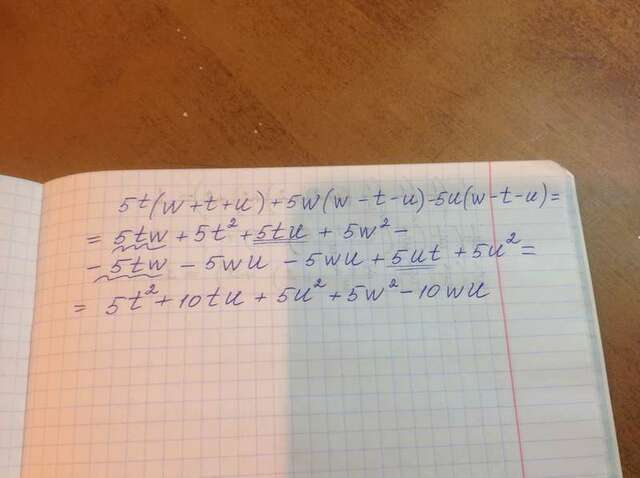 5t(w+t+u)+5w(w-t-u)-5u(w-t-u)=
= 5tw + 5t² + 5tu + 5w² -
- 5tw - 5wu - 5wu + 5ut + 5u² =
= 5t² + 10tu + 5u² + 5w² - 10wu